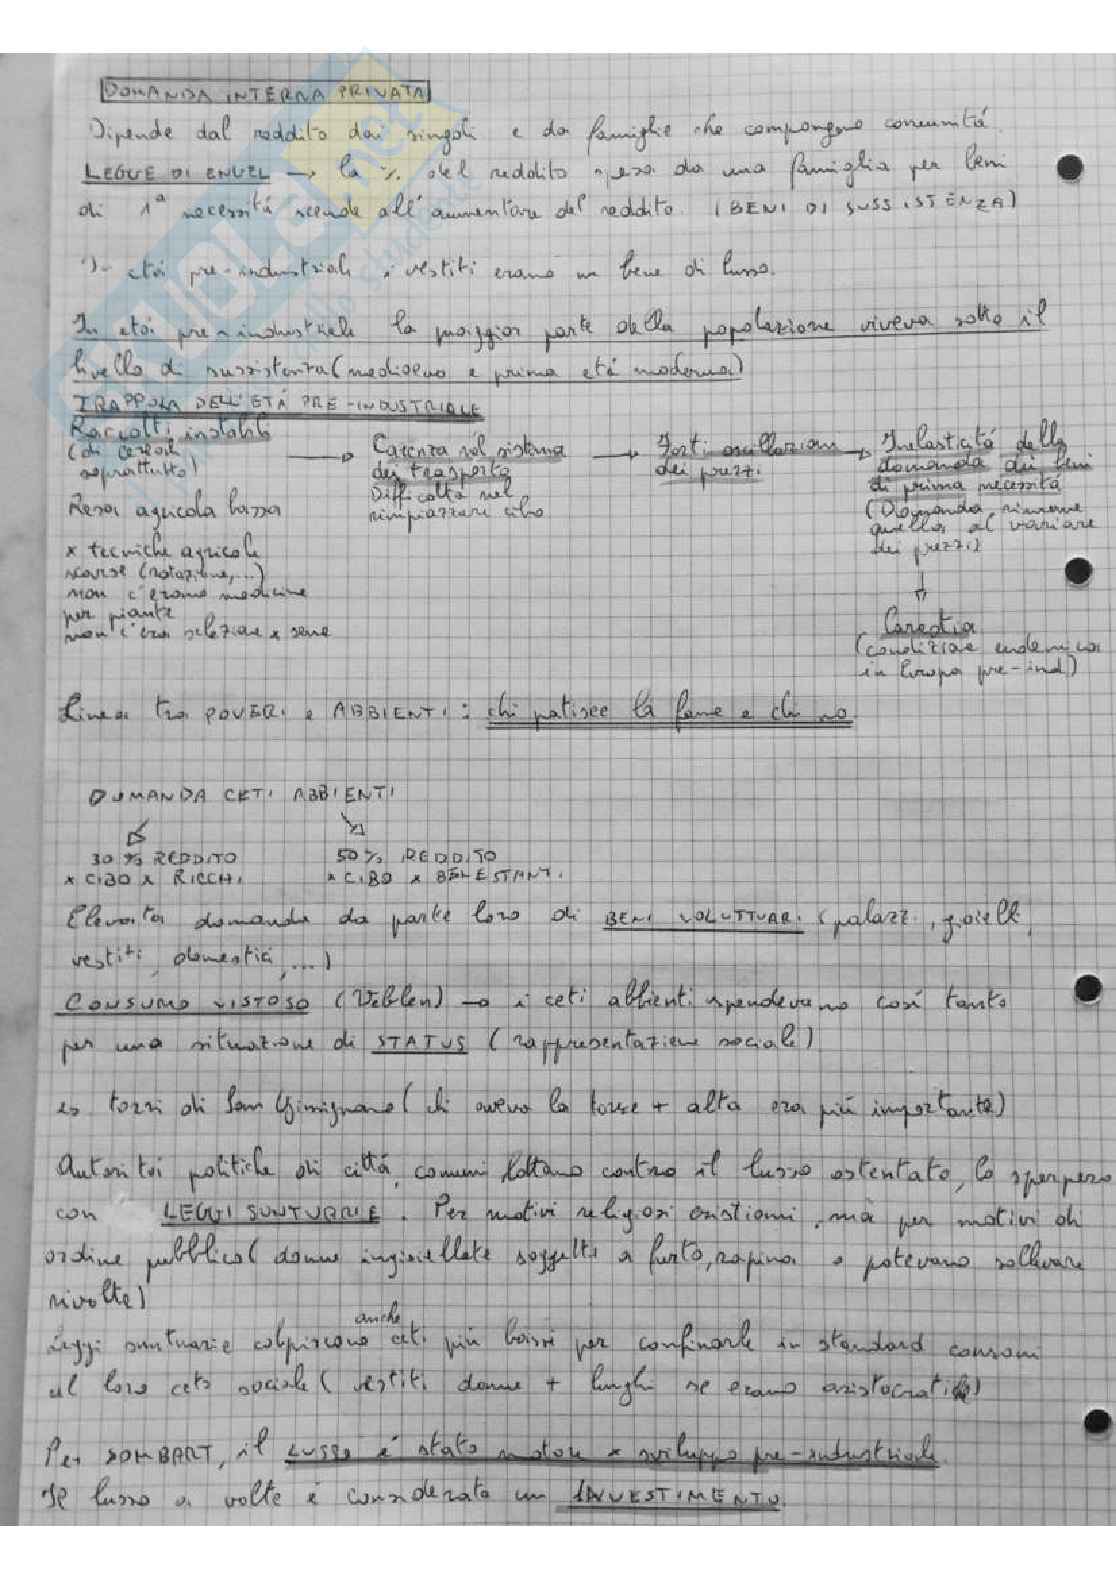 DOMANDA INTERNA PRIVATA
Dipende dal reddito dai singoli e da famiglie che compongono comunitá.
LEGGE DI ENGEL → la % del reddito spesa da una famiglia per beni
di 1ª necessitá scende all'aumentare del reddito. (BENI DI SUSSISTENZA)
In etá pre-industriale i vestiti erano un bene di lusso.
In etá pre-industriale la maggior parte della popolazione viveva sotto il
livello di sussistenza (medioevo e prima etá moderna)
TRAPPOLA DELL'ETÁ PRE-INDUSTRIALE
Raccolti instabili
(di cereali
soprattutto)
→ Carenza sol sistema
dei trasporto
Difficoltá nel
rimpiazzare cibo
→ Forti oscillazioni
dei prezzi
→ Inelasticitá della
domanda dei beni
di prima necessitá
(Domanda rimane
quella al variare
dei prezzi)
Resa agricola bassa
x tecniche agricole
scarse (rotazione,...)
non c'erano medicine
per piante
non c'era selezione x seme
Carestia
(condizione endemica
in Europa pre-ind)
Linea tra POVERI e ABBIENTI: chi patisce la fame e chi no.
DOMANDA CETI ABBIENTI
30% REDDITO
x CIBO x RICCHI
50% REDDITO
x CIBO x BENESTANTI
Elevata domanda da parte loro di BENI VOLUTTUARI (palazzi, gioielli,
vestiti, domestici,...)
CONSUMO VISTOSO (Veblen) → i ceti abbienti spendevano cosí tanto
per una situazione di STATUS (rappresentazione sociale)
es torri di San Gimignano (chi aveva la torre + alta era piú importante)
Autoritá politiche di cittá, comuni lottano contro il lusso ostentato, lo sperpero
con LEGGI SUNTUARIE. Per motivi religiosi cristiani, ma per motivi di
ordine pubblico (donne ingioiellate soggette a furto, rapina o potevano sollevare
rivolte)
anche
Leggi suntuarie colpiscono ceti piú bassi per confinarle in standard consoni
al loro ceto sociale (vestiti donne + lunghi se erano aristocratich)
Per SOMBART, il LUSSO é stato motore x sviluppo pre-industriale.
Il lusso a volte é considerato un INVESTIMENTO.